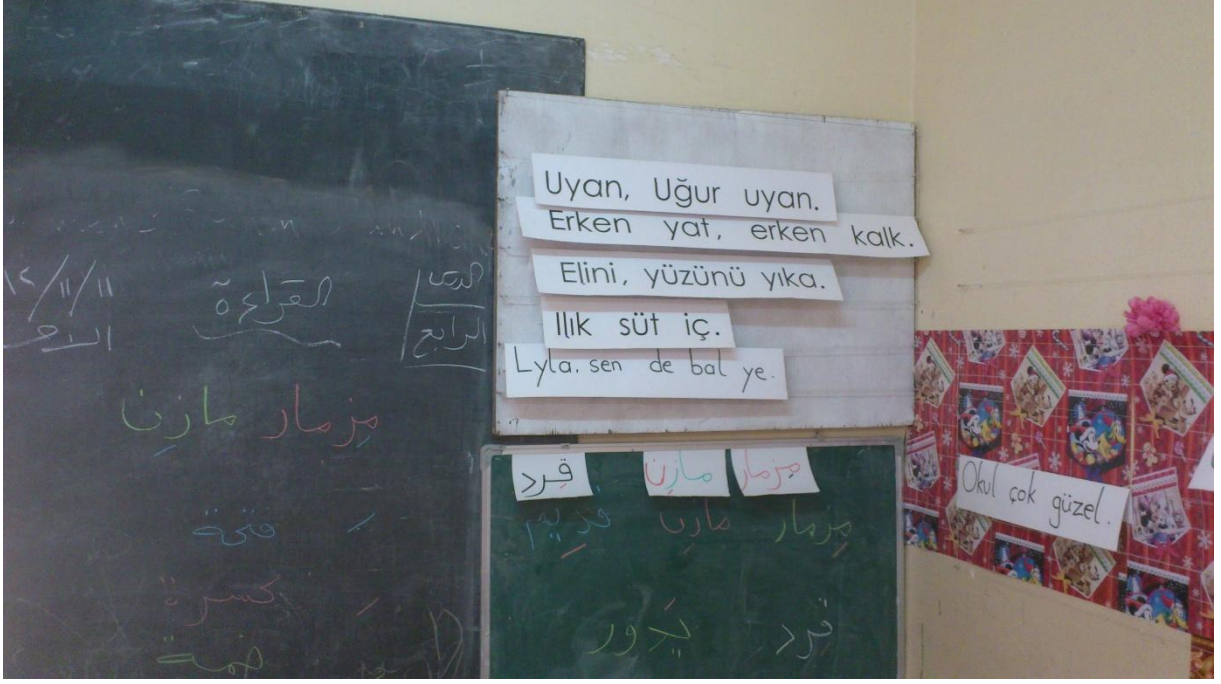 ١١/١١/١٤
القراءة
الرابع
مِزمار مازِن
فتحة
كسرة
ضمة
Uyan, Uğur uyan.
Erken yat, erken kalk.
Elini, yüzünü yıka.
Ilık süt iç.
Lyla. sen de bal ye.
مِزمار مازِن قِرد
مِزمار مازن
قِرد يَدور
Okul çok güzel.